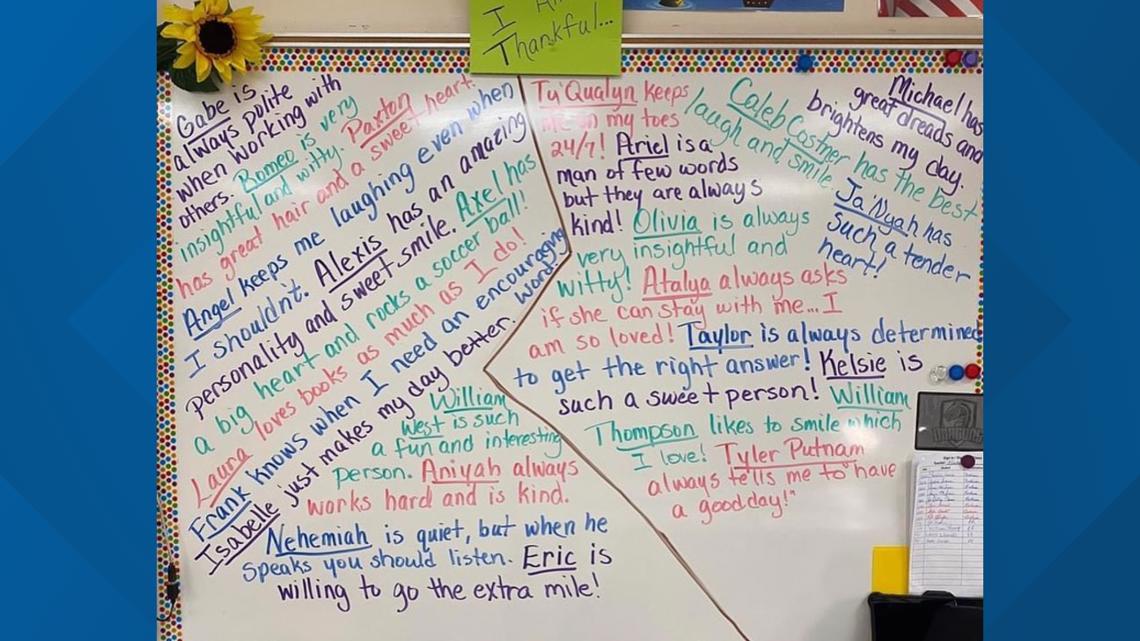 I Am
Thankful...
Gabe is
always polite
when working with
others. Romeo is very
insightful and witty. Paxton
has great hair and a sweet heart.
Angel keeps me laughing even when
I shouldn't. Alexis has an amazing
personality and sweet smile. Axel has
a big heart and rocks a soccer ball!
Launa loves books as much as I do!
Frank knows when I need an encouraging
word.
Isabelle just makes my day better.
William
West is such
a fun and interesting
person. Aniyah always
works hard and is kind.
Nehemiah is quiet, but when he
speaks you should listen. Eric is
willing to go the extra mile!
Ty'Qualyn keeps
me on my toes
24/7! Ariel is a
man of few words
but they are always
kind! Olivia is always
very insightful and
witty! Atalya always asks
if she can stay with me...I
am so loved! Taylor is always determined
to get the right answer! Kelsie is
such a sweet person! William
Thompson likes to smile which
I love! Tyler Putnam
always tells me to "have
a good day!"
Caleb Castner has the best
laugh and smile.
Michael has
great dreads and
brightens my day.
Ja'Nyah has
such a tender
heart!